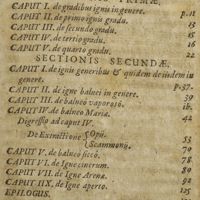 PRIMÆ,
CAPUT I. de gradibus ignis in genere. p.11
CAPUT II. de primo ignis gradu. 13
CAPUT III. de secundo gradu. 15
CAPUT IV. de tertio gradu. 16
CAPUT V. de quarto gradu. 22
SECTIONIS SECUNDÆ.
CAPUT I. de ignis generibus & quidem de iisdem in
genere. p.37.
CAPUT II. de igne balnei in genere. 39
CAPUT III. de balneo vaporoso. ib.
CAPUT IV. de balneo Mariæ. 42
Digressio ad caput IV.
De Exinitione Opii.
Scammonij. 53
CAPUT V. de balneo sicco. 70
CAPUT VI. de Igne cinerum. 77
CAPUT VII. de Igne Arenæ. 120
CAPUT IIX. de Igne aperto. 125
EPILOGUS. 135